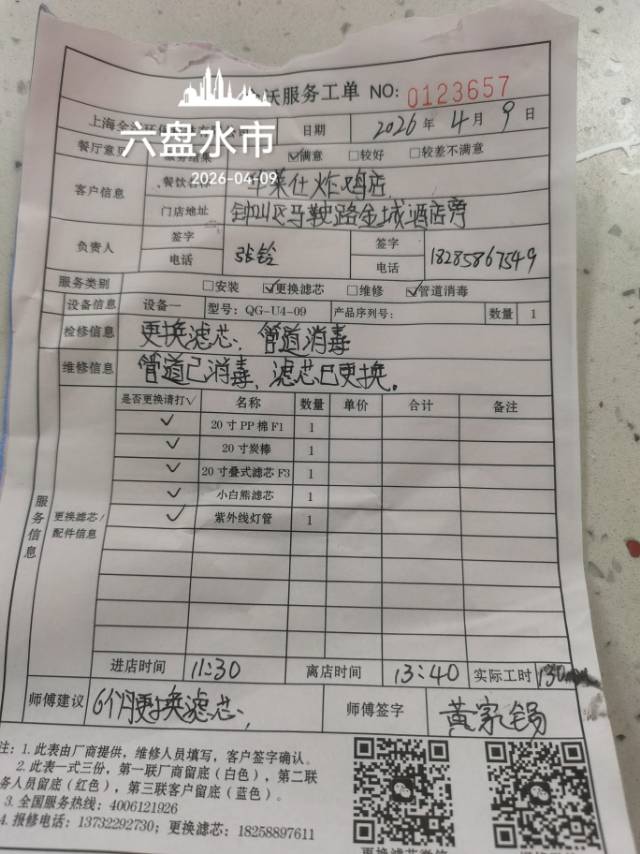 沃服务工单 NO: 0123657
六盘水市
2026-04-09
上海全 日期 2026年4月9日
餐厅意 服务结果 ☑满意 □较好 □较差不满意
客户信息 餐饮名称 莱仕炸鸡店
门店地址 钟山区马鞍路金城酒店旁
负责人 签字 电话 张铃 签字 电话 18285867549
服务类别 □安装 ☑更换滤芯 □维修 ☑管道消毒
设备信息 设备一 型号: QG-U4-09 产品序列号: 数量 1
检修信息 更换滤芯、管道消毒
维修信息 管道已消毒、滤芯已更换。
服务信息 更换滤芯/配件信息
是否更换请打√ 名称 数量 单价 合计 备注
✓ 20寸PP棉F1 1
✓ 20寸炭棒 1
✓ 20寸叠式滤芯F3 1
✓ 小白熊滤芯 1
✓ 紫外线灯管 1
进店时间 11:30 离店时间 13:40 实际工时 130
师傅建议 6个月更换滤芯、 师傅签字 黄家锡
注: 1.此表由厂商提供，维修人员填写，客户签字确认。
2.此表一式三份，第一联厂商留底（白色），第二联
务人员留底（红色），第三联客户留底（蓝色）。
3.全国服务热线: 4006121926
4.报修电话: 13732292730; 更换滤芯: 18258897611